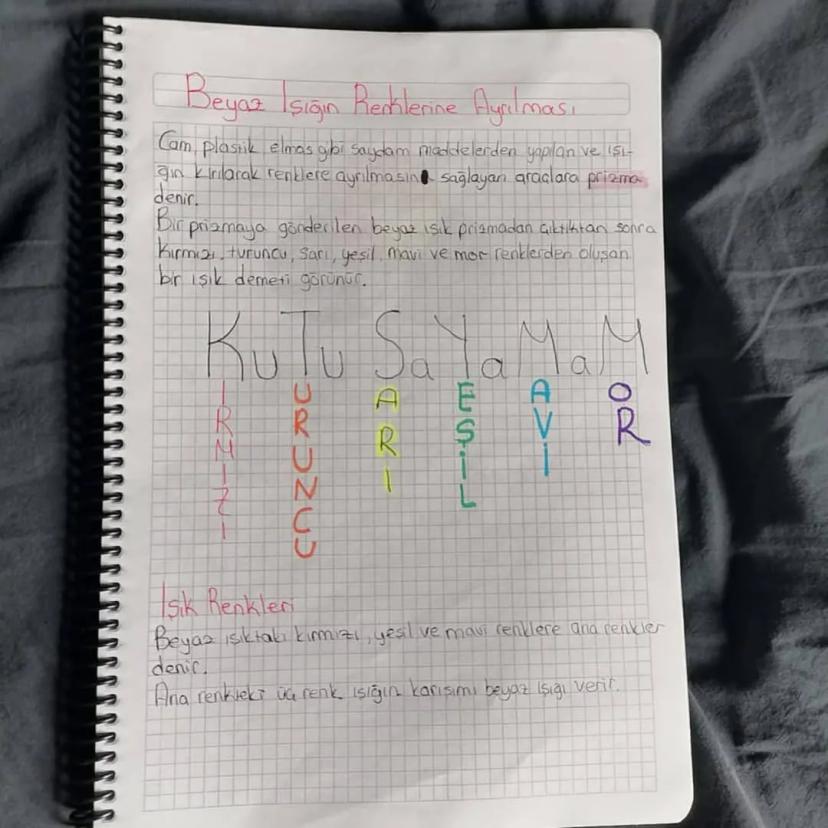 Beyaz Işığın Renklerine Ayrılması
Cam, plastik elmas gibi saydam maddelerden yapılan ve ışı-
ğın kırılarak renklere ayrılmasını sağlayan araçlara prizma
denir.
Bir prizmaya gönderilen beyaz ışık prizmadan çıktıktan sonra
kırmızı, turuncu, sarı, yeşil, mavi ve mor renklerden oluşan
bir ışık demeti görünür.
KuTu SaYaMaM
IRMIZI
URUNCU
ARI
EŞİL
AVİ
OR
Işık Renkleri
Beyaz ışıktaki kırmızı, yeşil ve mavi renklere ana renkler
denir.
Ana renkteki üç renk ışığın karışımı beyaz ışığı verir.